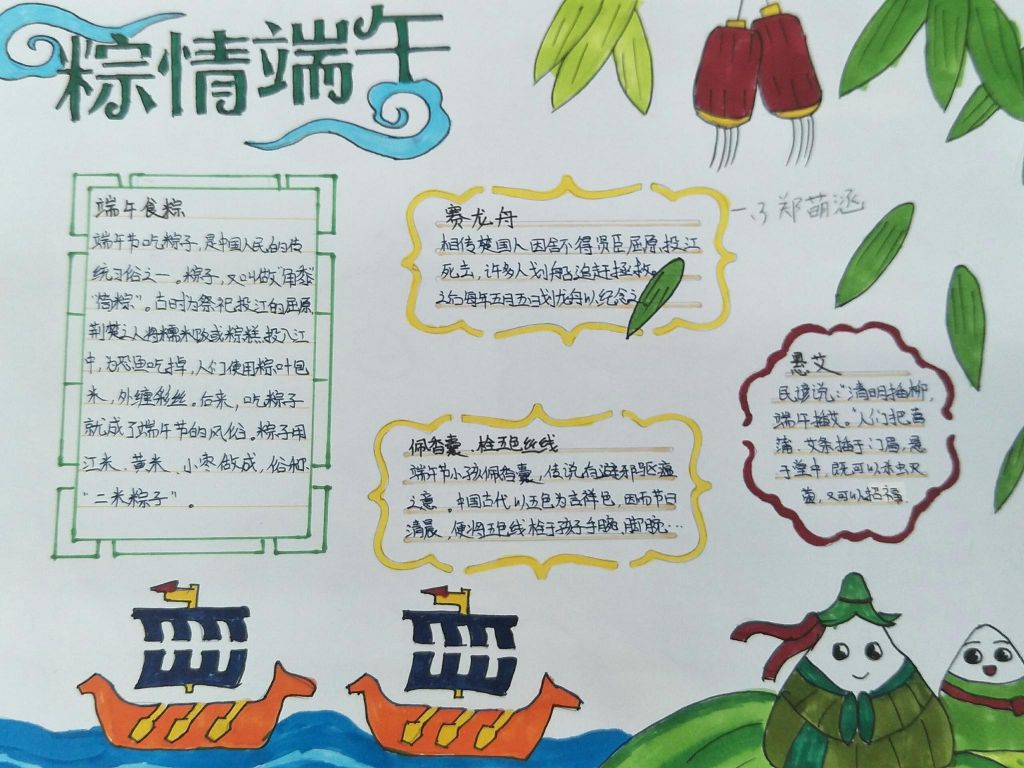 粽情端午
端午食粽
端午节吃粽子,是中国人民的传
统习俗之一。粽子,又叫做"角黍"
"筒粽"。古时为祭祀投江的屈原,
荆楚之人将糯米饭或粽糕投入江
中,为恐鱼吃掉,人们使用粽叶包
米,外缠彩丝。后来,吃粽子
就成了端午节的风俗。粽子用
江米、黄米、小枣做成,俗称
"二米粽子"。
赛龙舟
相传楚国人因舍不得贤臣屈原投江
死去,许多人划船追赶拯救。
之后每年五月五日划龙舟以纪念之
郑萌涵
悬艾
民谚说:"清明插柳,
端午插艾。"人们把菖
蒲、艾条插于门眉,悬
于堂中,既可以杀虫灭
菌,又可以招福
佩香囊、栓五色丝线
端午节小孩佩香囊,传说有避邪驱瘟
之意。中国古代以五色为吉祥色,因而节日
清晨,便将五色线栓于孩子手腕、脚腕…